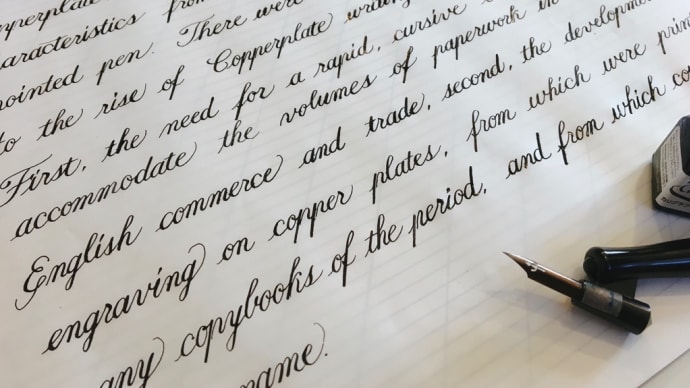 from
characteristics from
pointed pen. There were
to the rise of Copperplate writing
First, the need for a rapid, cursive
accommodate the volumes of paperwork in
English commerce and trade, second, the development
engraving on copper plates, from which were
any copybooks of the period, and from which
name.